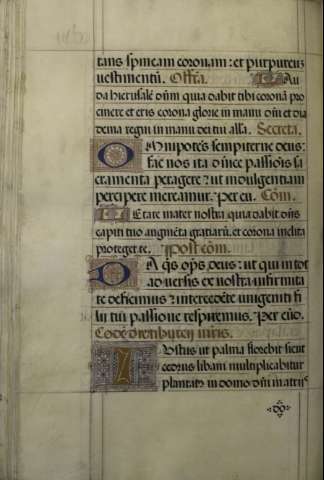 tans spineam coronam: et purpureū
vestimentū. Offa. Lau
da hierusalē dn̄m quia dabit tibi coronā pro
cinere et eris corona glorie in manu dn̄i et dia
dema regni in manu dei tui alla. Secreta.
Omnipotēs sempiterne deus:
fac nos ita dn̄ice passiōis sa
cramenta peragere ut indulgentiam
percipere mereamur. Per eū. Cōm.
Letare mater nostra quia dabit dn̄s
capiti tuo augmēta gratiarū, et corona inclita
proteget te. Post com.
Da q̄s op̄s deus: ut qui in tot
adversis ex nostra infirmita
te deficimus intercedēte unigeniti fi
lii tui passione respiremus. Per eūd.
Iustus ut palma florebit sicut
cedrus libani multiplicabitur
plantatꝰ in domo dn̄i in atriis